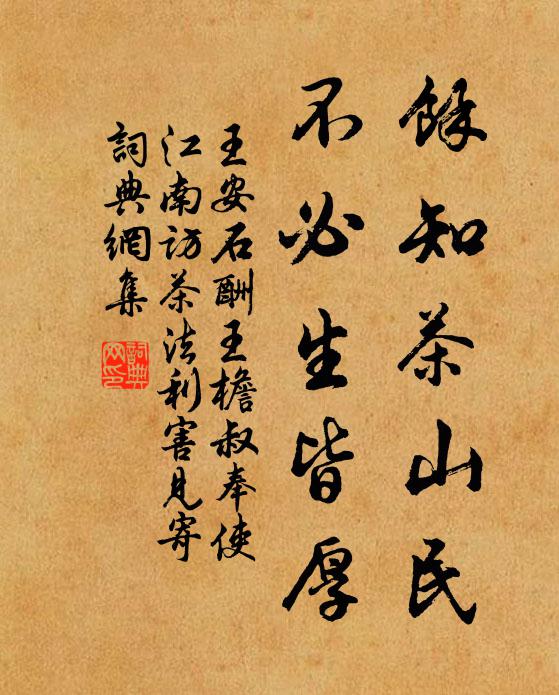 餘知茶山民
不必生皆厚
王安石酬王檐叔奉使
江南訪茶法利害見寄
詞典網集
詞典
网印